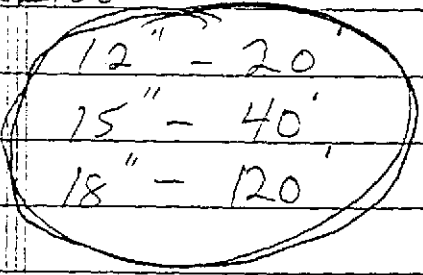 12" - 20'
15" - 40'
18" - 120'